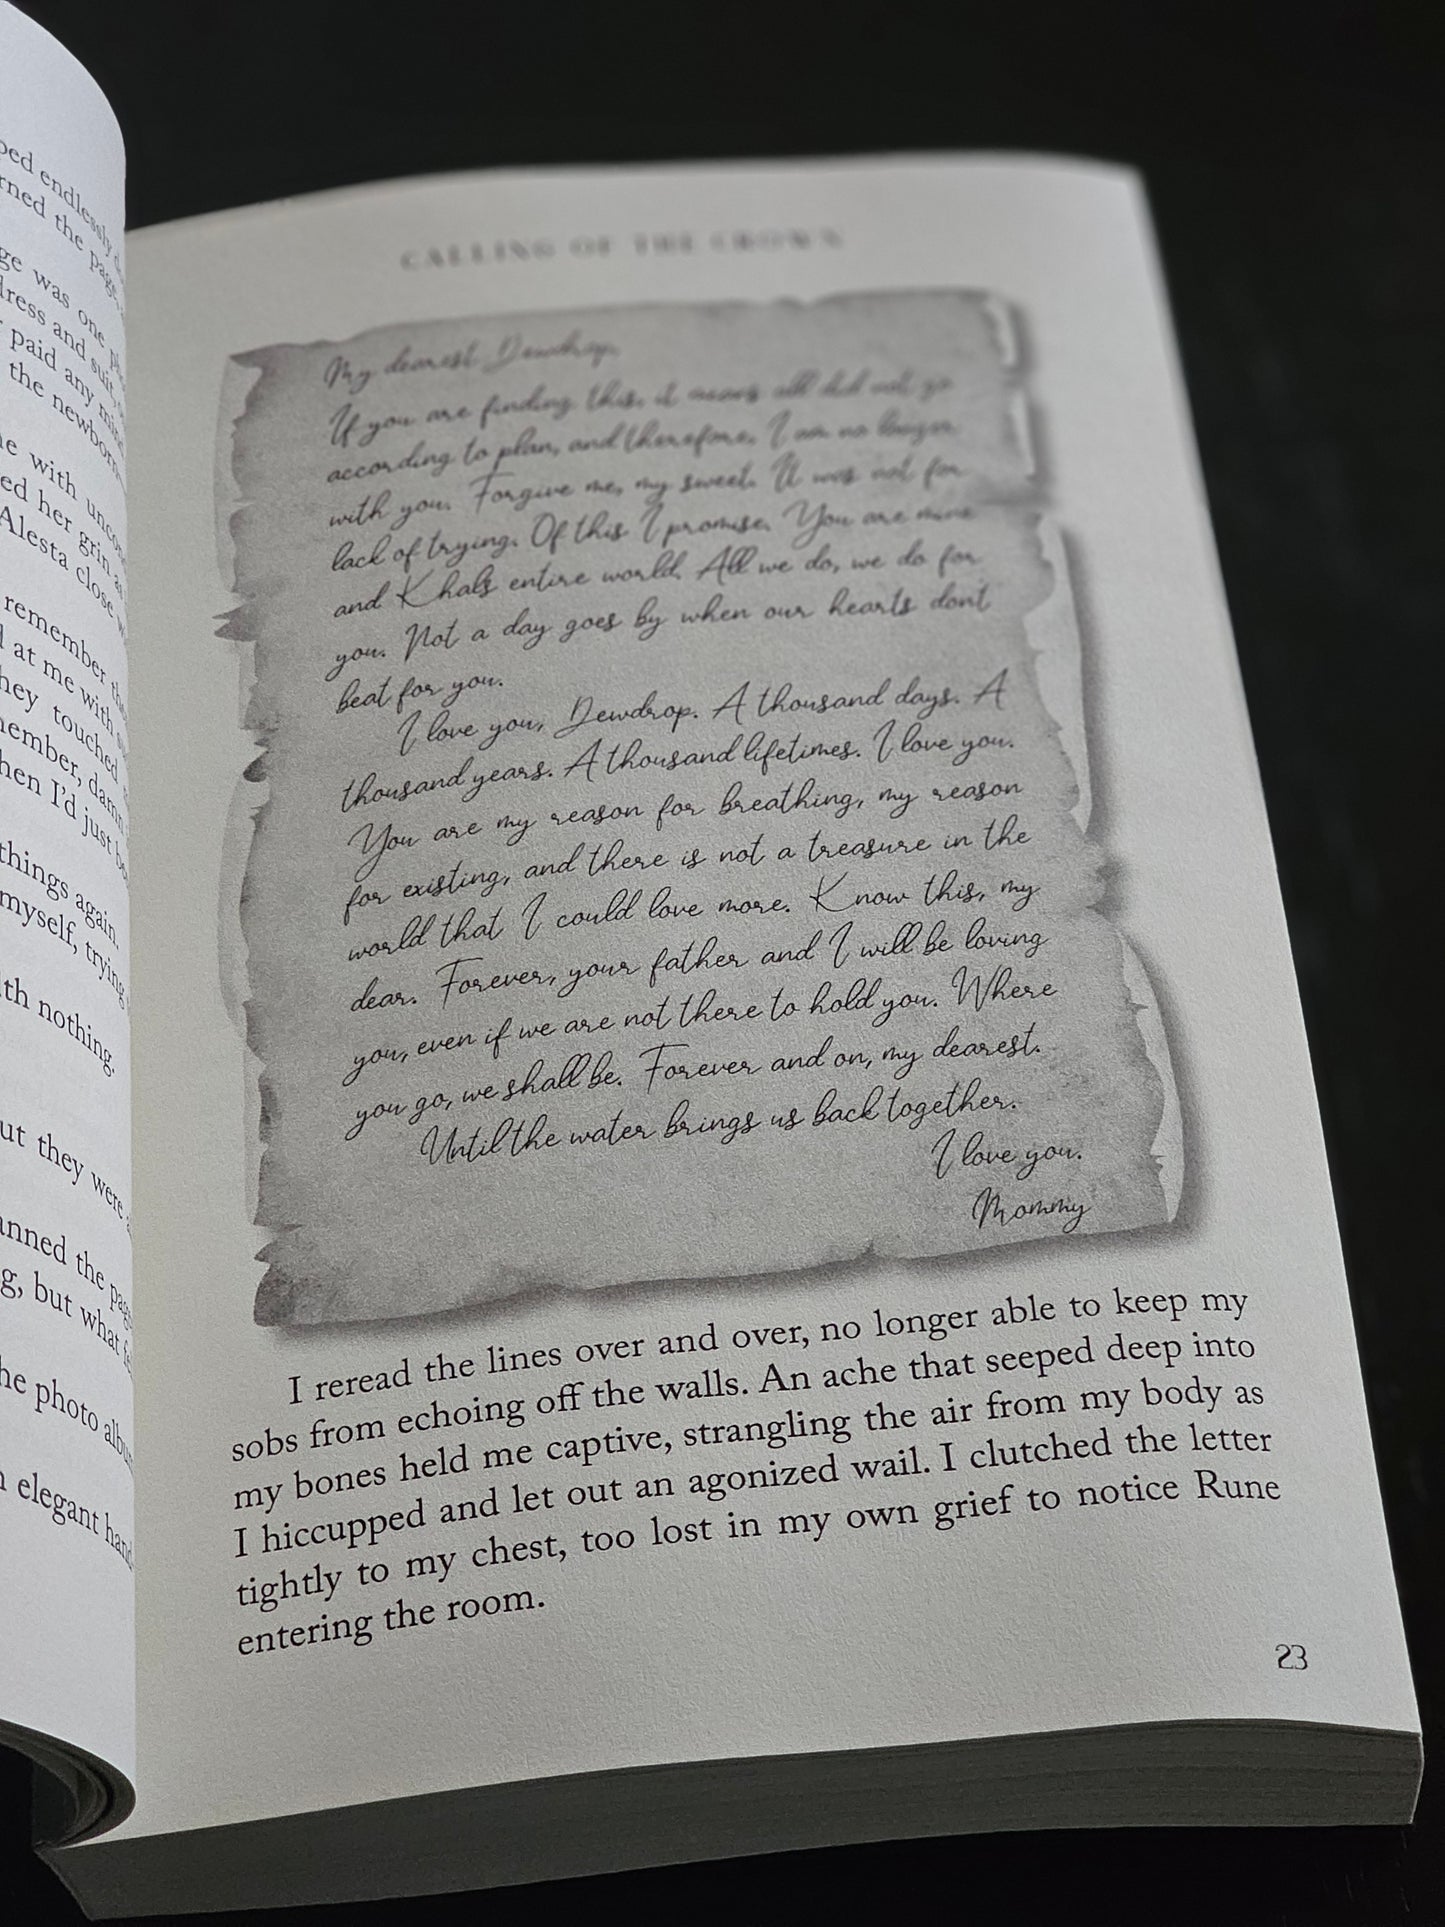 ped endlessly
rned the page,
ge was one
dress and suit,
paid any mind
the newborn
he with
ed her grin as
Alesta close
remember
d at me with
hey touched
member, damn
hen I'd just
things again.
myself, trying
ith nothing.
ut they were
anned the
g, but what
he photo
n elegant
CALLING OF THE CROWN
My dearest Dewdrop,
If you are finding this, it means all did not go
according to plan, and therefore, I am no longer
with you. Forgive me, my sweet. It was not for
lack of trying. Of this I promise. You are mine
and Khal's entire world. All we do, we do for
you. Not a day goes by when our hearts don't
beat for you.
I love you, Dewdrop. A thousand days. A
thousand years. A thousand lifetimes. I love you.
You are my reason for breathing, my reason
for existing, and there is not a treasure in the
world that I could love more. Know this, my
dear. Forever, your father and I will be loving
you, even if we are not there to hold you. Where
you go, we shall be. Forever and on, my dearest.
Until the water brings us back together.
I love you.
Mommy
I reread the lines over and over, no longer able to keep my
sobs from echoing off the walls. An ache that seeped deep into
my bones held me captive, strangling the air from my body as
I hiccupped and let out an agonized wail. I clutched the letter
tightly to my chest, too lost in my own grief to notice Rune
entering the room.
23